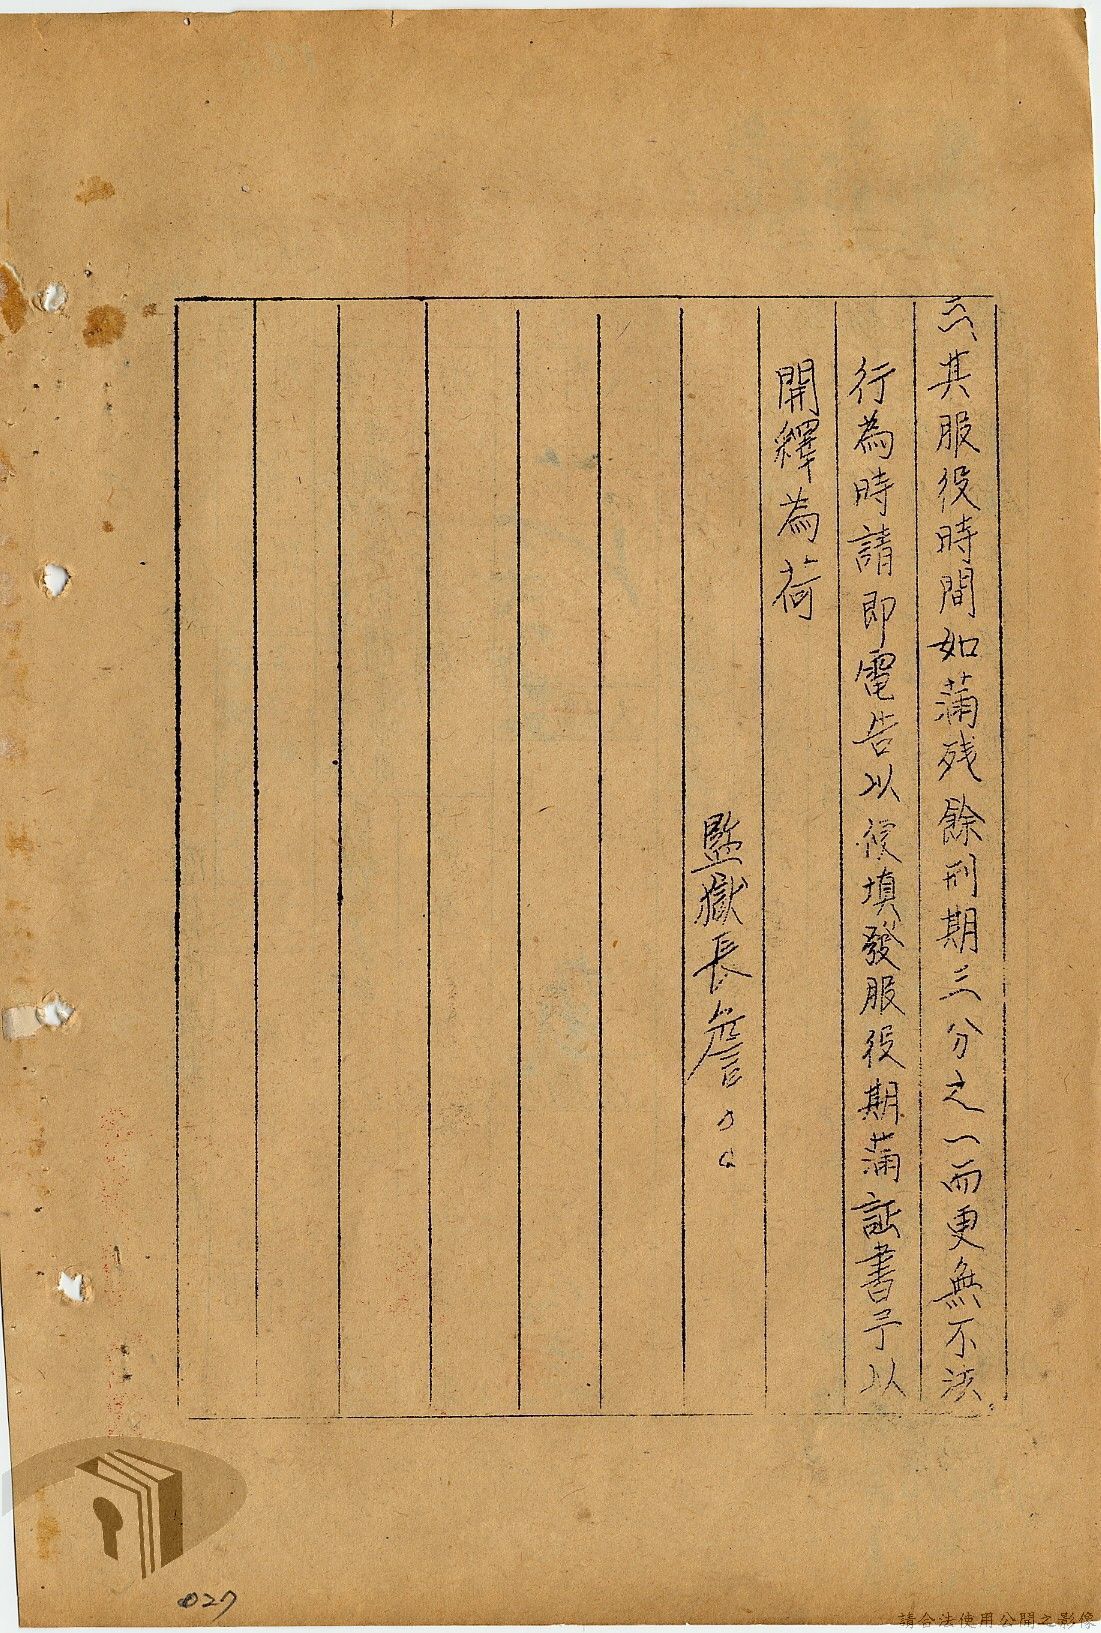 三、其服役時間如滿残餘刑期三分之一而更無不法
行為時請即電告以後填發服役期滿証書予以
開釋為荷
監獄長詹○○
027
請合法使用公開之影像